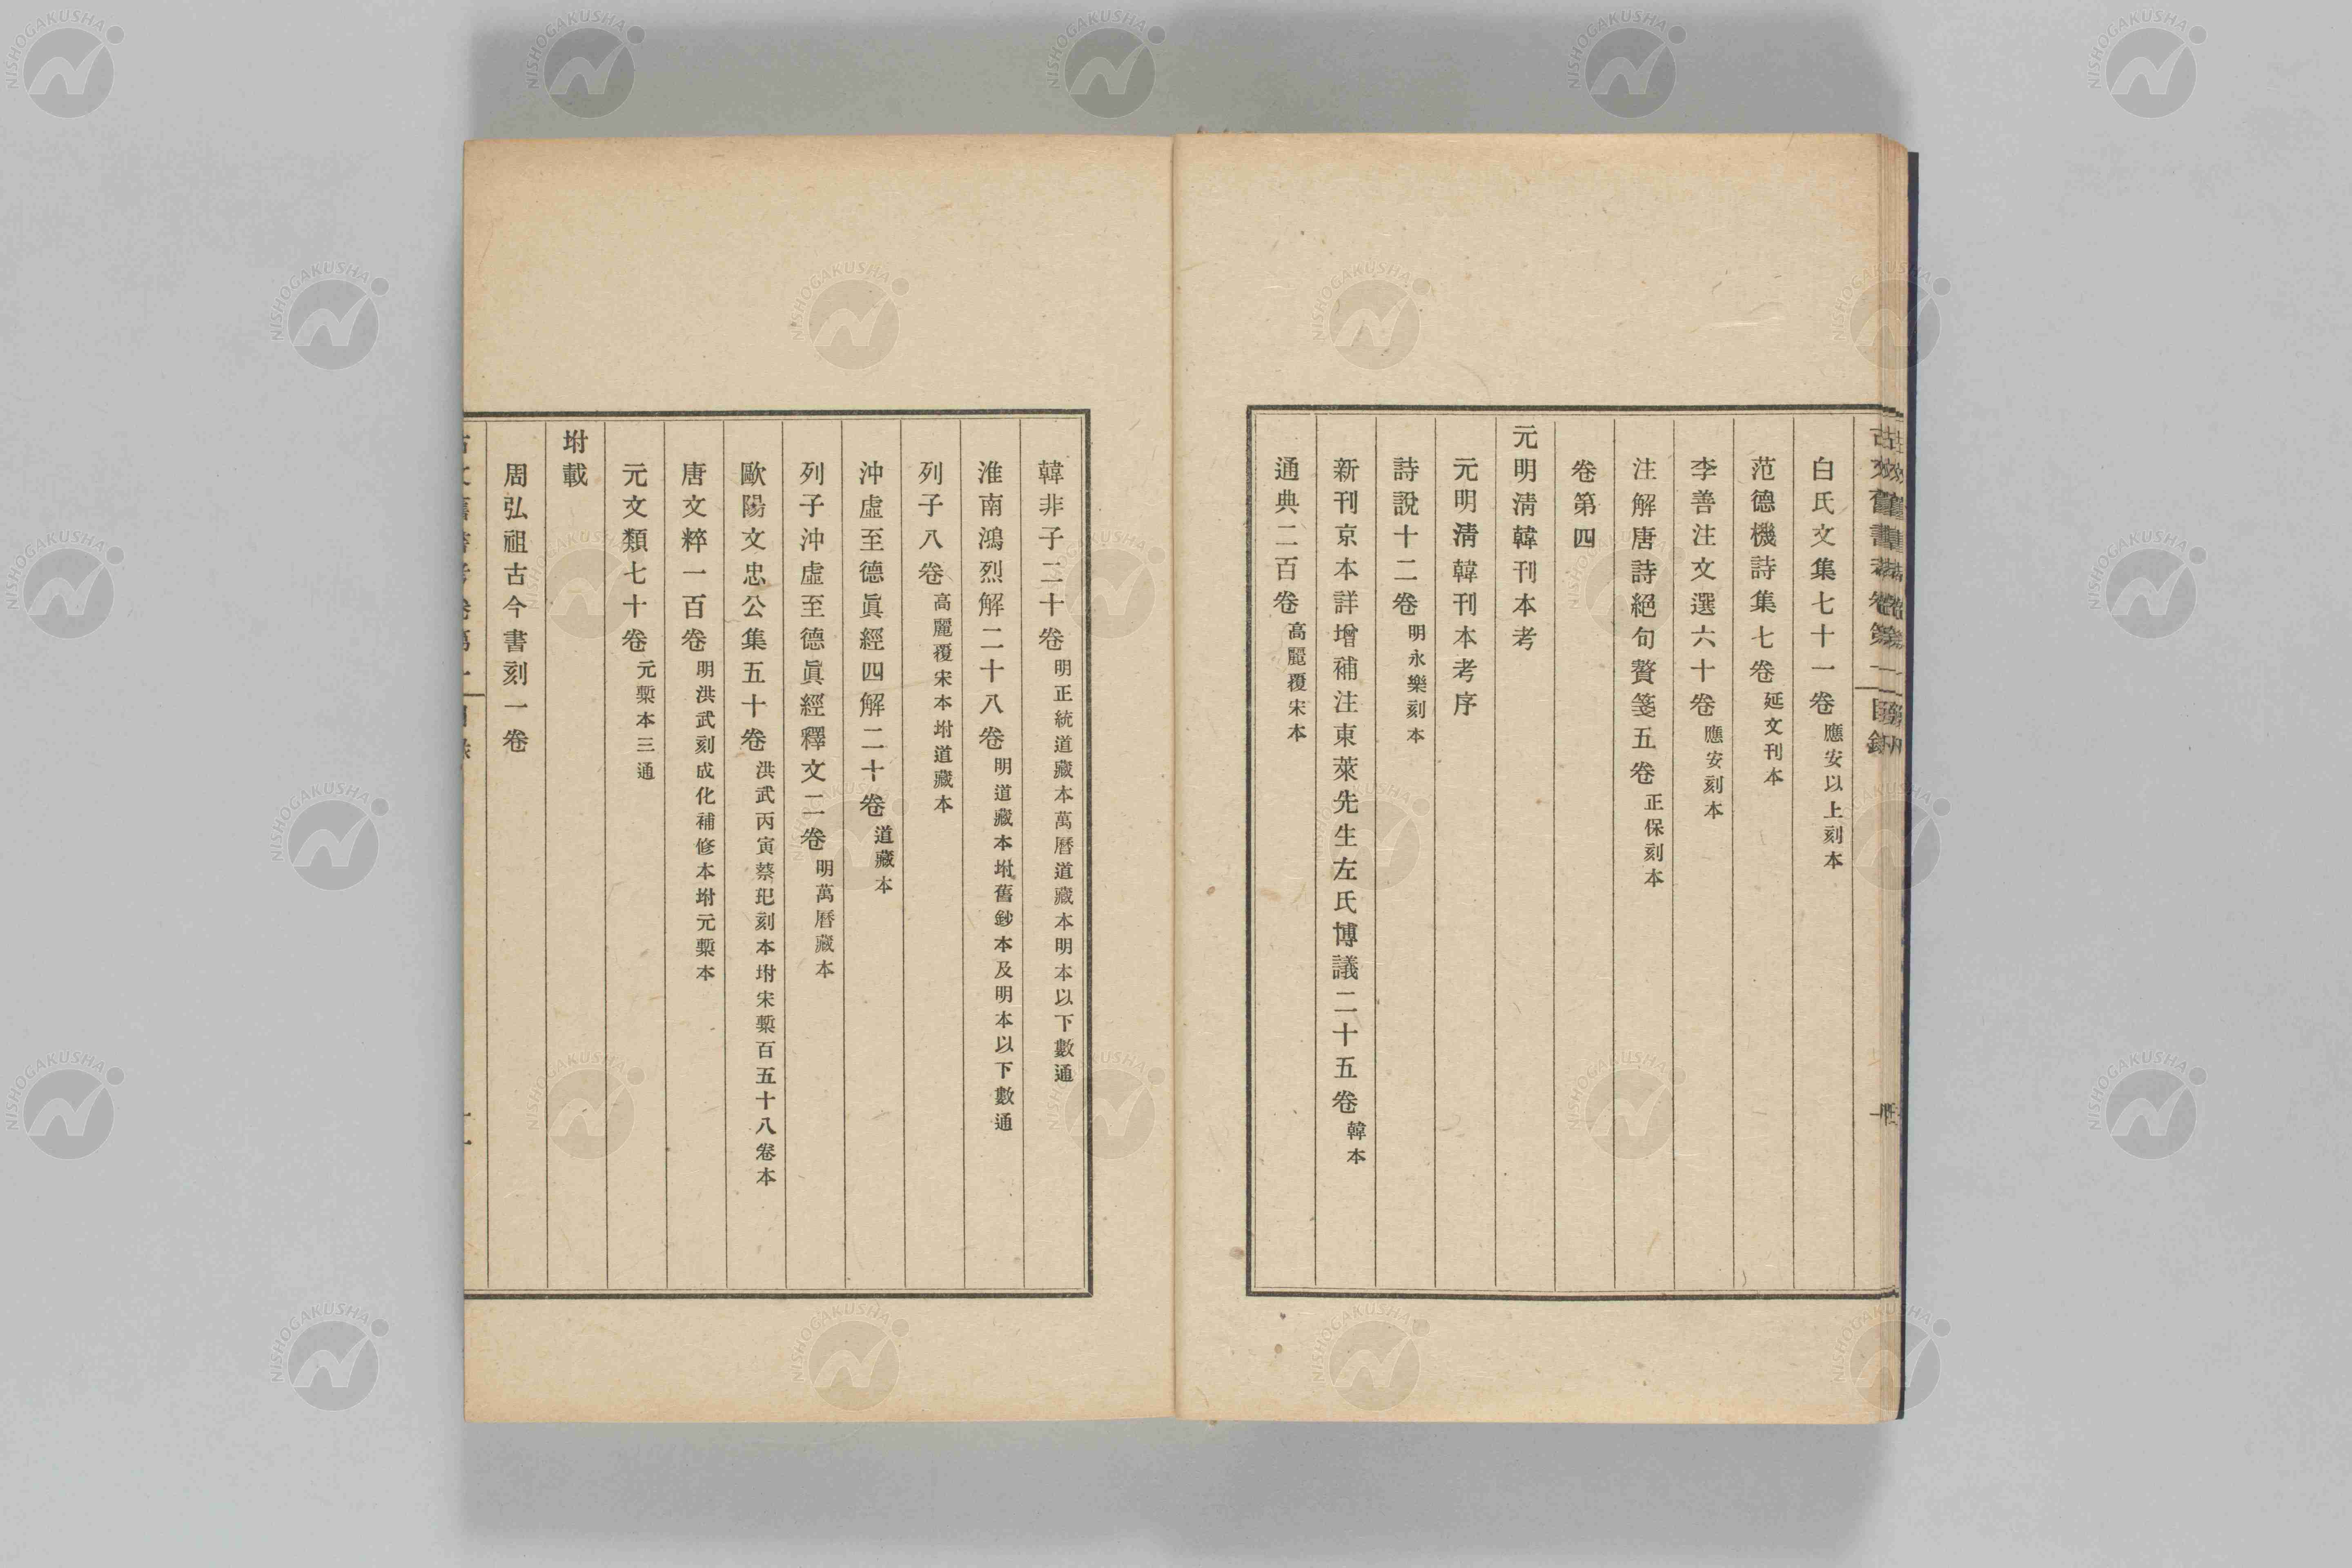 古文舊書考卷第一目錄
白氏文集七十一卷應安以上刻本
范德機詩集七卷延文刊本
李善注文選六十卷應安刻本
注解唐詩絕句贅箋五卷正保刻本
卷第四
元明淸韓刊本考
元明淸韓刊本考序
詩說十二卷明永樂刻本
新刊京本詳增補注東萊先生左氏博議二十五卷韓本
通典二百卷高麗覆宋本
韓非子二十卷明正統道藏本萬曆道藏本明本以下數通
淮南鴻烈解二十八卷明道藏本坿舊鈔本及明本以下數通
列子八卷高麗覆宋本坿道藏本
沖虛至德眞經四解二十卷道藏本
列子沖虛至德眞經釋文二卷明萬曆藏本
歐陽文忠公集五十卷洪武丙寅蔡玘刻本坿宋槧百五十八卷本
唐文粹一百卷明洪武刻成化補修本坿元槧本
元文類七十卷元槧本三通
坿載
周弘祖古今書刻一卷
NISHOGAKUSHA